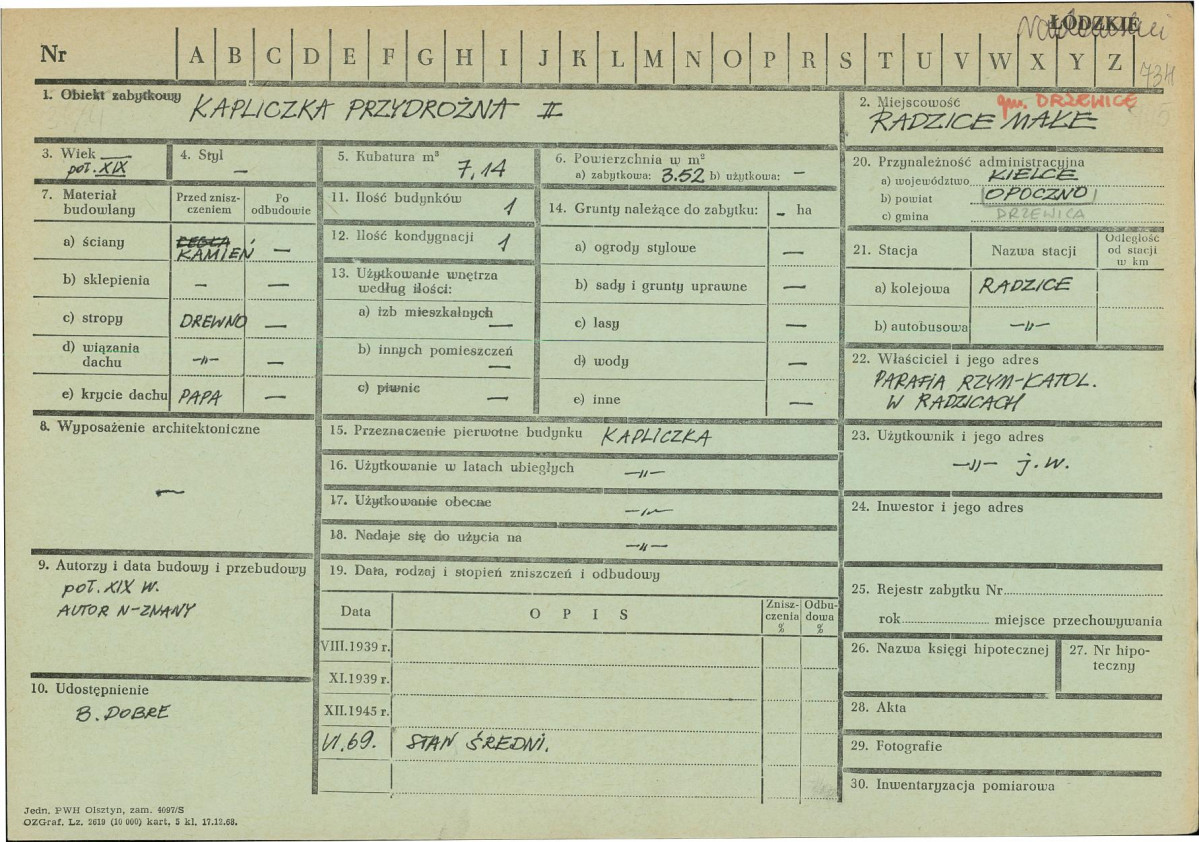 ŁÓDZKIE
Nr A B C D E F G H I J K L M N O P R S T U V W X Y Z
734
1. Obiekt zabytkowy KAPLICZKA PRZYDROŻNA II
2. Miejscowość gm. DRZEWICĘ
RADZICE MAŁE
3. Wiek poł. XIX
4. Styl —
5. Kubatura m³ 7,14
6. Powierzchnia w m²
a) zabytkowa: 3.52 b) użytkowa: —
7. Materiał budowlany
Przed zniszczeniem
Po odbudowie
a) ściany CEGŁA KAMIEŃ —
b) sklepienia — —
c) stropy DREWNO —
d) wiązania dachu —„— —
e) krycie dachu PAPA —
8. Wyposażenie architektoniczne
—
9. Autorzy i data budowy i przebudowy
poł. XIX W.
AUTOR N-ZNANY
10. Udostępnienie
B. DOBRE
11. Ilość budynków 1
12. Ilość kondygnacji 1
13. Użytkowanie wnętrza
według ilości:
a) izb mieszkalnych —
b) innych pomieszczeń —
c) piwnic —
14. Grunty należące do zabytku: — ha
a) ogrody stylowe —
b) sady i grunty uprawne —
c) lasy —
d) wody —
e) inne —
15. Przeznaczenie pierwotne budynku KAPLICZKA
16. Użytkowanie w latach ubiegłych —„—
17. Użytkowanie obecne —„—
18. Nadaje się do użycia na —„—
19. Data, rodzaj i stopień zniszczeń i odbudowy
Data OPIS Zniszczenia % Odbudowa %
VIII.1939 r.
XI.1939 r.
XII.1945 r.
VI.69. STAN ŚREDNI.
20. Przynależność administracyjna
a) województwo KIELCE
b) powiat OPOCZNO
c) gmina DRZEWICA
21. Stacja Nazwa stacji Odległość od stacji w km
a) kolejowa RADZICE
b) autobusowa —„—
22. Właściciel i jego adres
PARAFIA RZYM-KATOL.
W RADZICACH
23. Użytkownik i jego adres
—„— j.w.
24. Inwestor i jego adres
25. Rejestr zabytku Nr
rok miejsce przechowywania
26. Nazwa księgi hipotecznej
27. Nr hipoteczny
28. Akta
29. Fotografie
30. Inwentaryzacja pomiarowa
Jedn. PWH Olsztyn, zam. 4097/S
OZGraf. Lz. 2619 (10 000) kart, 5 kl. 17.12.68.